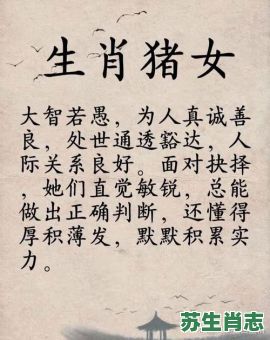 生肖猪女
大智若愚，为人真诚善
良，处世通透豁达，人
际关系良好。面对抉择
，她们直觉敏锐，总能
做出正确判断，还懂得
厚积薄发，默默积累实
力。
苏生肖志